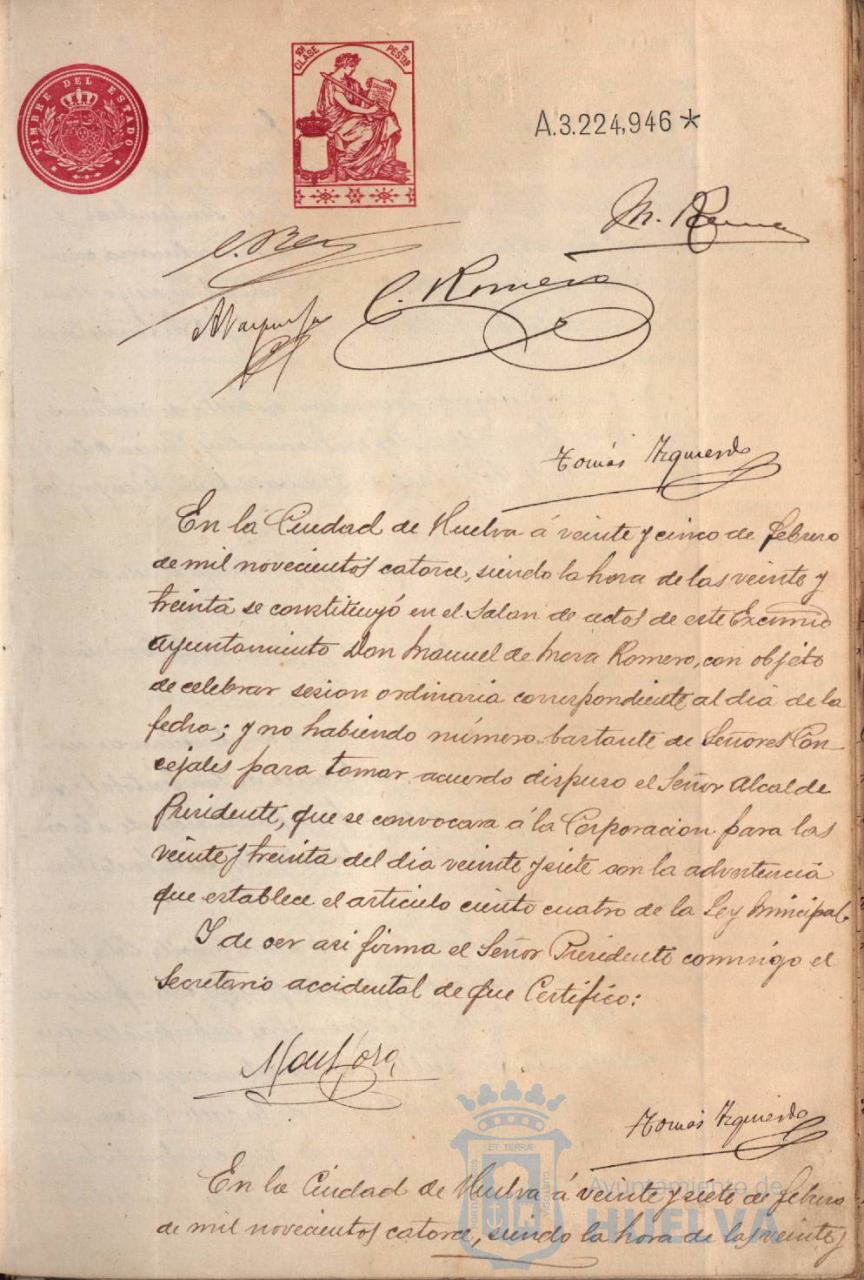 TIMBRE DEL ESTADO
10ª CLASE
2 PESTAS
A.3.224,946*
M.
C. Rey
C. Romero
A Vazquez
Tomás Izquierdo
En la Ciudad de Huelva á veinte y cinco de febrero
de mil novecientos catorce, siendo la hora de las veinte y
treinta se constituyó en el Salon de actos de este Excmo
Ayuntamiento Don Manuel de Mora Romero, con objeto
de celebrar sesion ordinaria correspondiente al dia de la
fecha; y no habiendo número bastante de Señores Con-
cejales para tomar acuerdo dispuso el Señor Alcalde
Presidente, que se convocara á la Corporacion para las
veinte y treinta del dia veinte y siete con la advertencia
que establece el articulo ciento cuatro de la Ley Municipal.
Y de ser asi firma el Señor Presidente conmigo el
Secretario accidental de que Certifico:
M de Mora
Tomás Izquierdo
En la Ciudad de Huelva á veinte y siete de febrero
de mil novecientos catorce, siendo la hora de las veinte y
ET TERRÆ
Ayuntamiento de
HUELVA